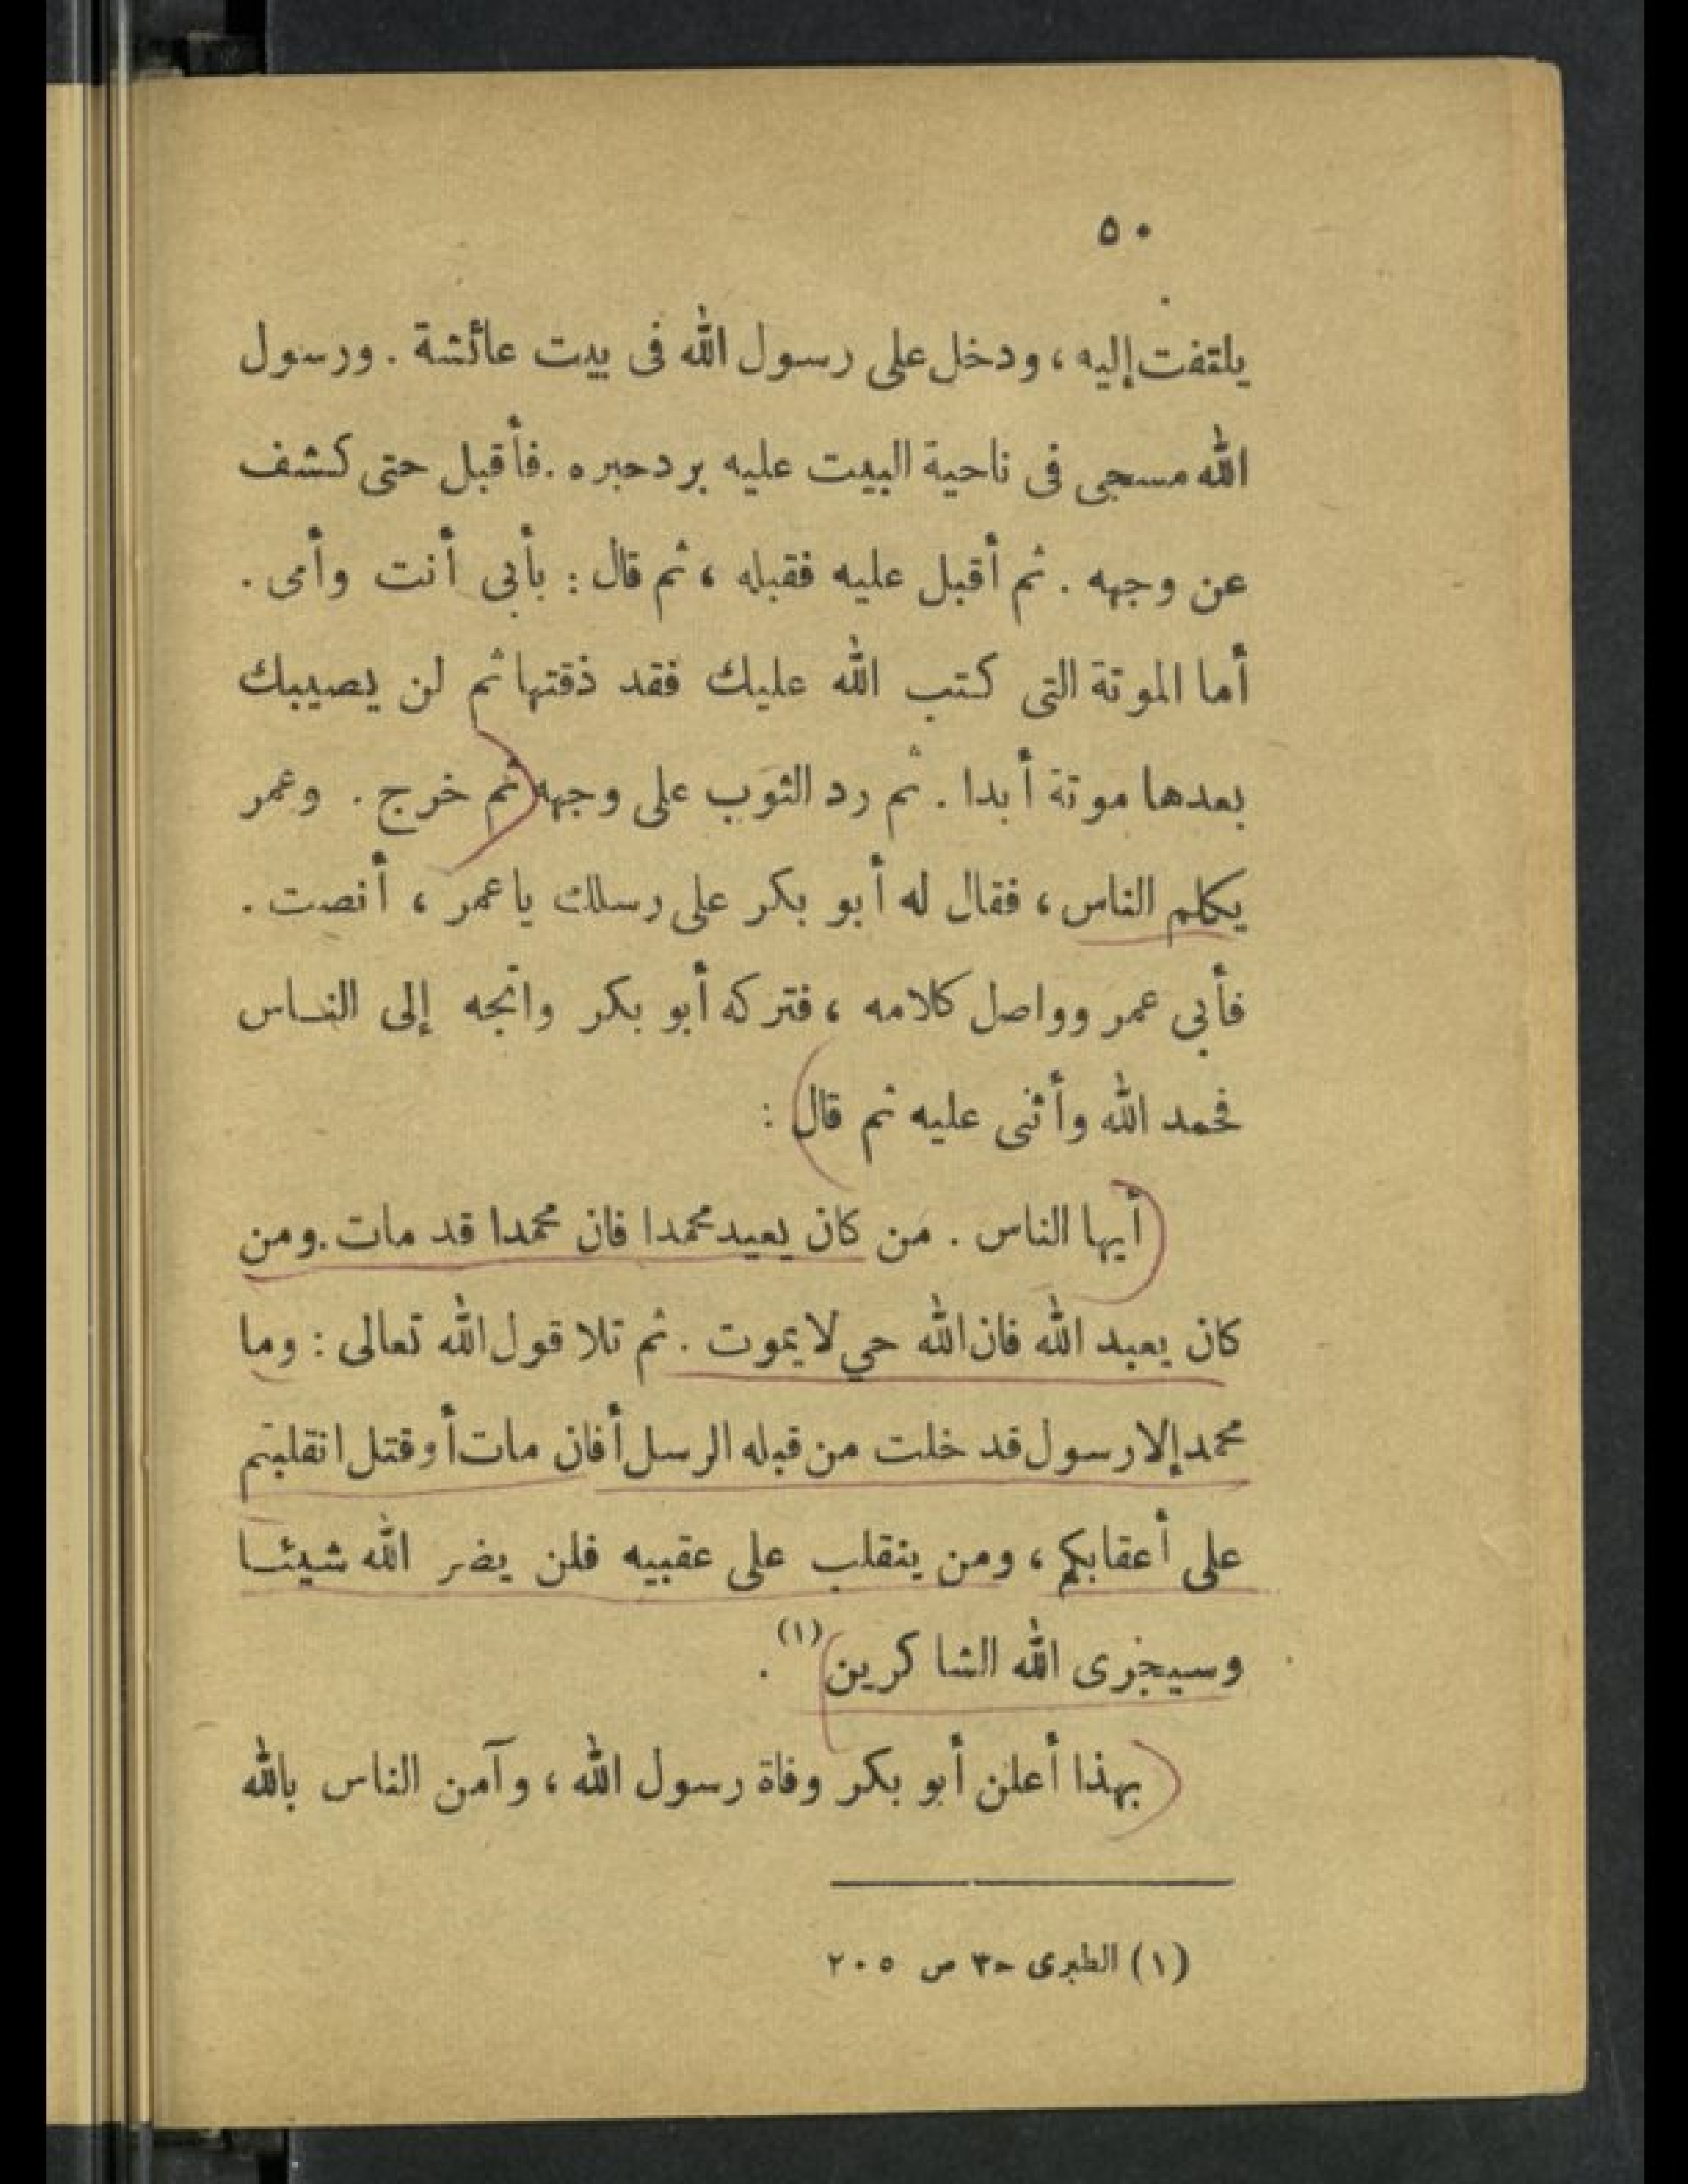 ٥٠
يلتفت إليه ، ودخل على رسول الله فى بيت عائشة . ورسول
الله مسجى فى ناحية البيت عليه برد حبره . فأقبل حتى كشف
عن وجهه . ثم أقبل عليه فقبله ، ثم قال : بأبى أنت وأمى .
أما الموتة التى كتب الله عليك فقد ذقتها ثم لن يصيبك
بعدها موتة أبدا . ثم رد الثوب على وجهه ثم خرج . وعمر
يكلم الناس ، فقال له أبو بكر على رسلك ياعمر ، أنصت .
فأبى عمر وواصل كلامه ، فتركه أبو بكر واتجه إلى النــاس
فحمد الله وأثنى عليه ثم قال :
أيها الناس . من كان يعبد محمدا فان محمدا قد مات . ومن
كان يعبد الله فان الله حي لا يموت . ثم تلا قول الله تعالى : وما
محمد إلا رسول قد خلت من قبله الرسل أفان مات أو قتل انقلبتم
على أعقابكم ، ومن ينقلب على عقبيه فلن يضر الله شيئــا
وسيجزى الله الشاكرين (١) .
بهذا أعلن أبو بكر وفاة رسول الله ، وآمن الناس بالله
(١) الطبرى ح‍ ٣ ص ٢٠٥